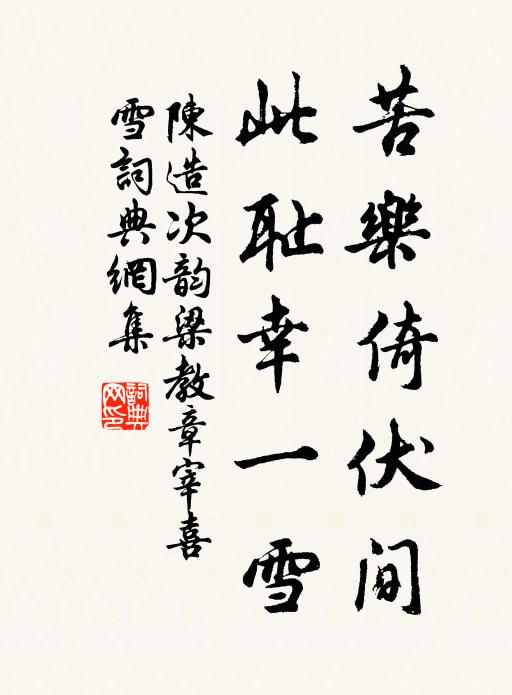 苦樂倚伏間
此恥幸一雪
陳造次韵梁教章宰喜
雪詞典網集
詞典网印